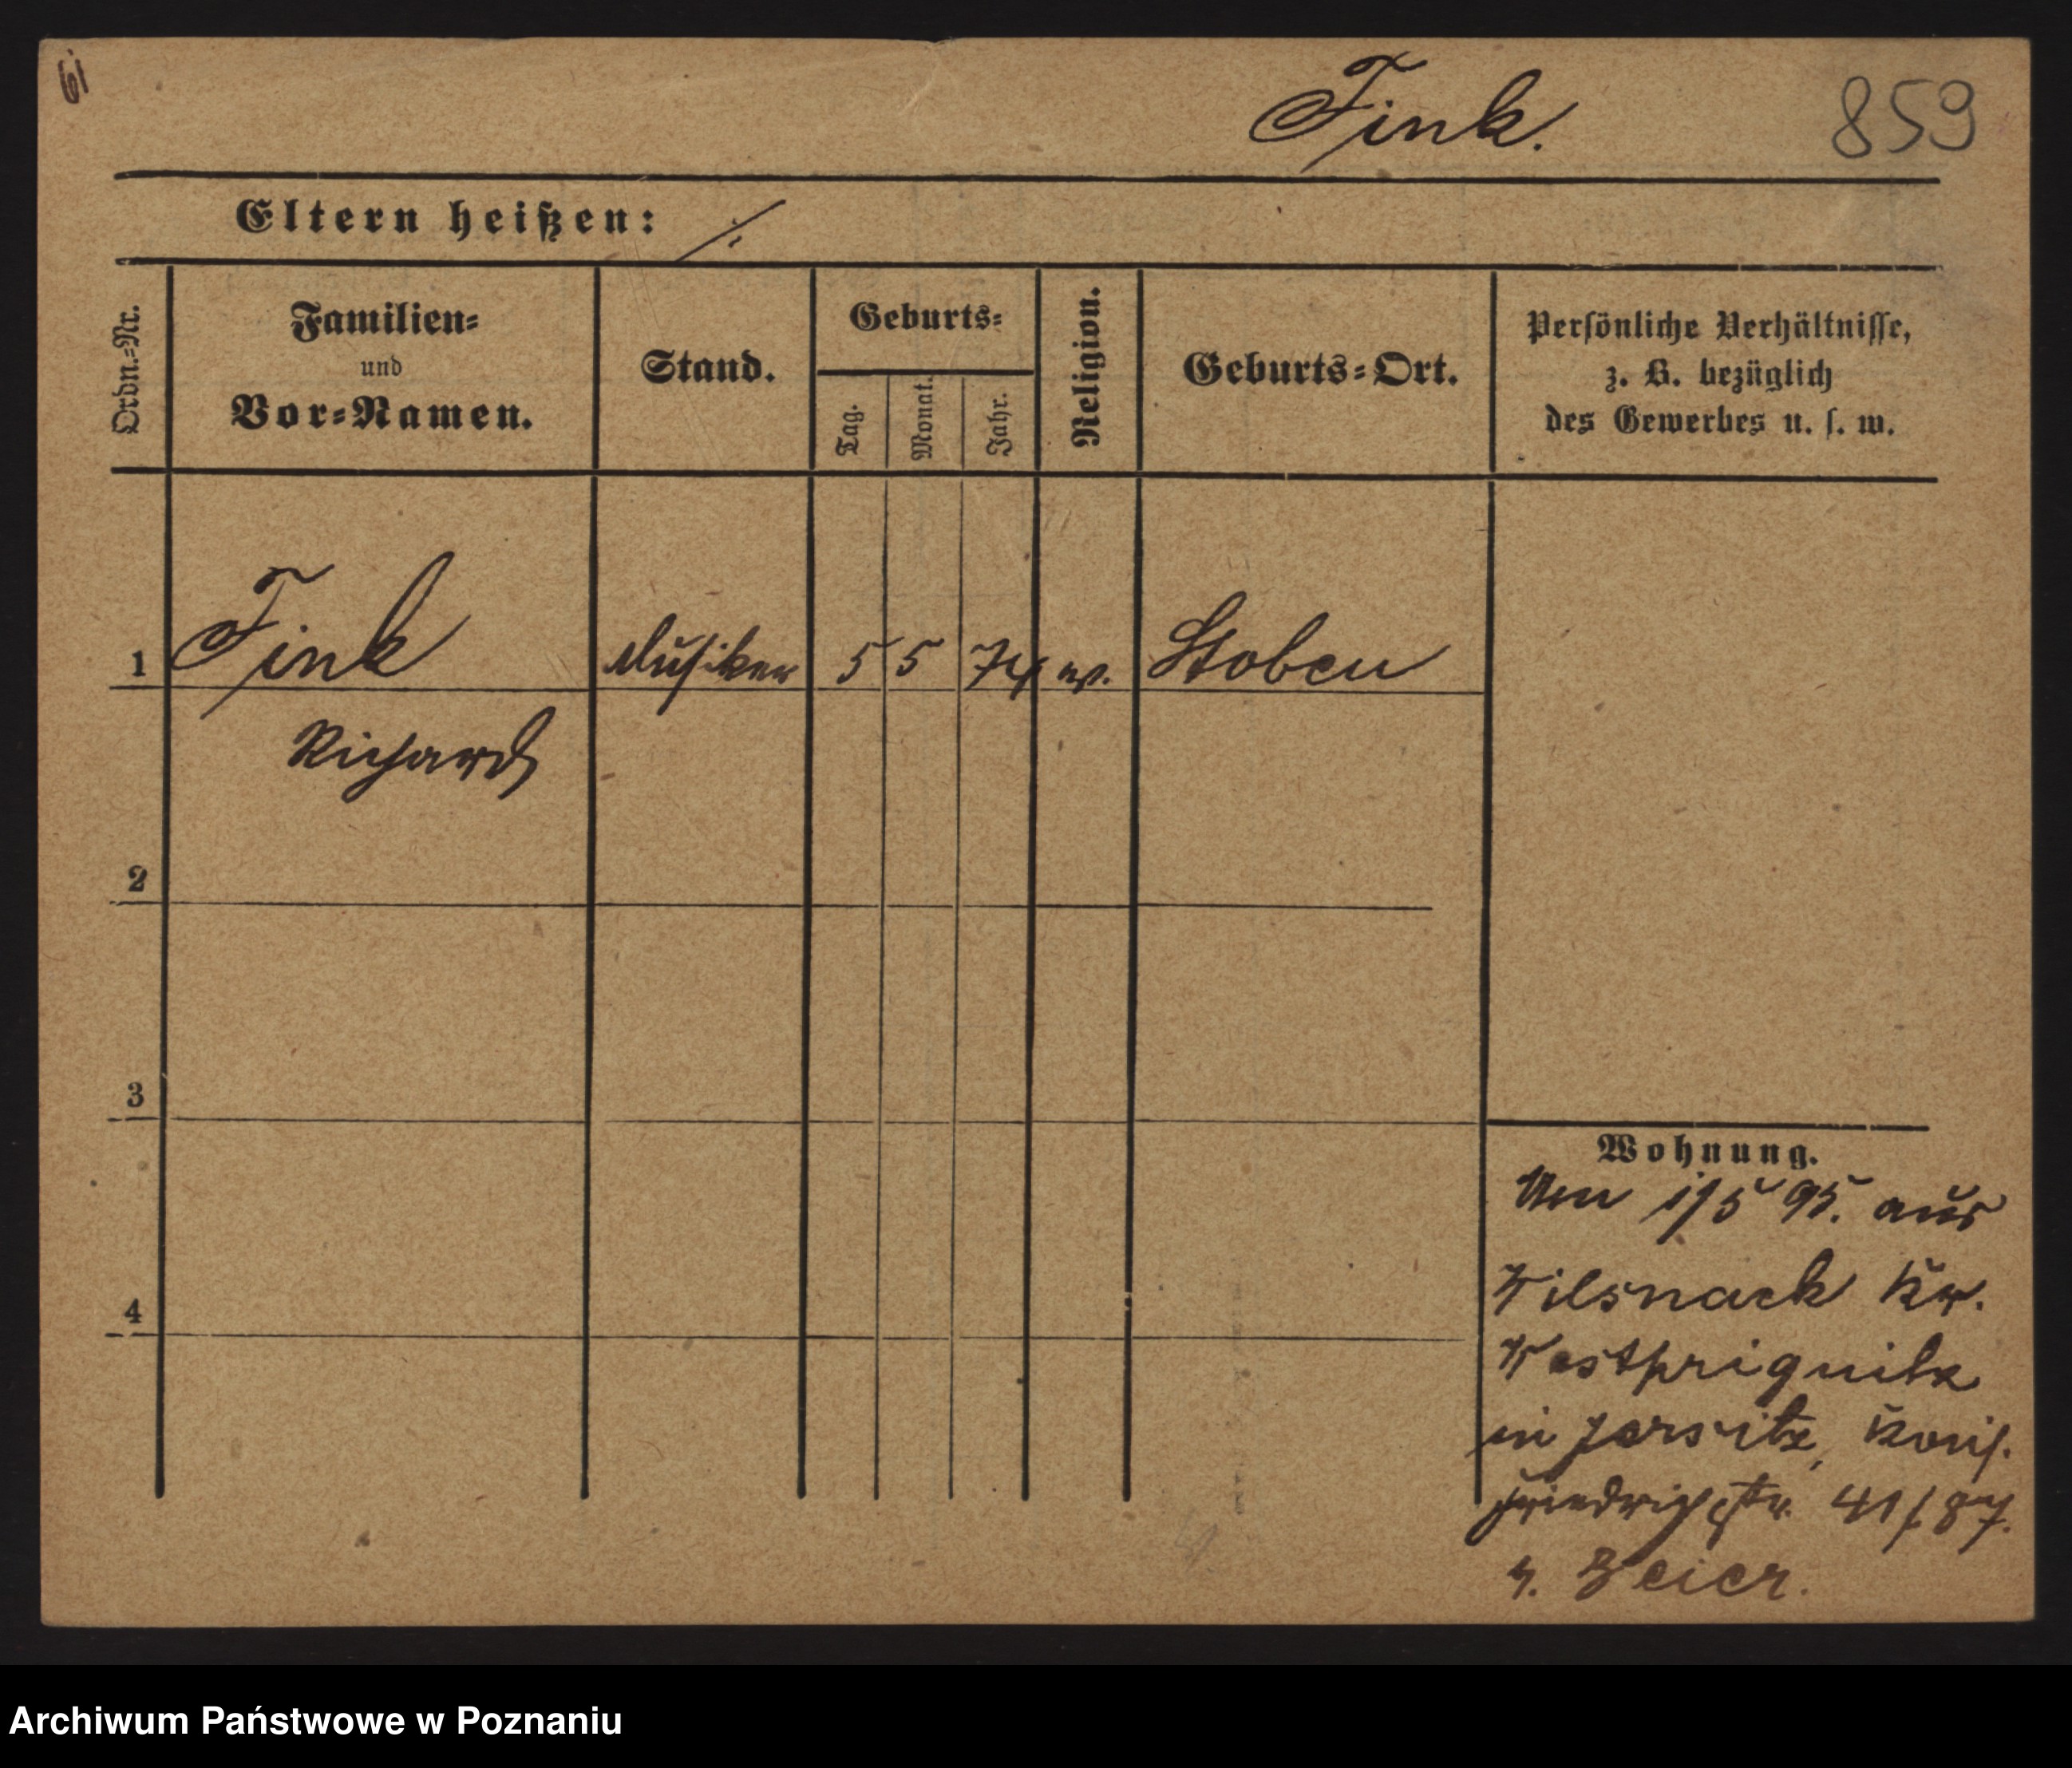 Fink.
859
Eltern heißen: ./.
Ordn.-Nr.
Familien-
und
Vor-Namen.
Stand.
Geburts-
Tag.
Monat.
Jahr.
Religion.
Geburts-Ort.
Persönliche Verhältnisse,
z. B. bezüglich
des Gewerbes u. s. w.
1 Fink Musiker 5 5 74 ev. Stoben
Richard
2
3
4
Wohnung.
1/5 95. aus
Wilsnack Kr.
Westprignitz
in Jersitz,
Friedrichstr. 41/87.
b. Beier.
Archiwum Państwowe w Poznaniu